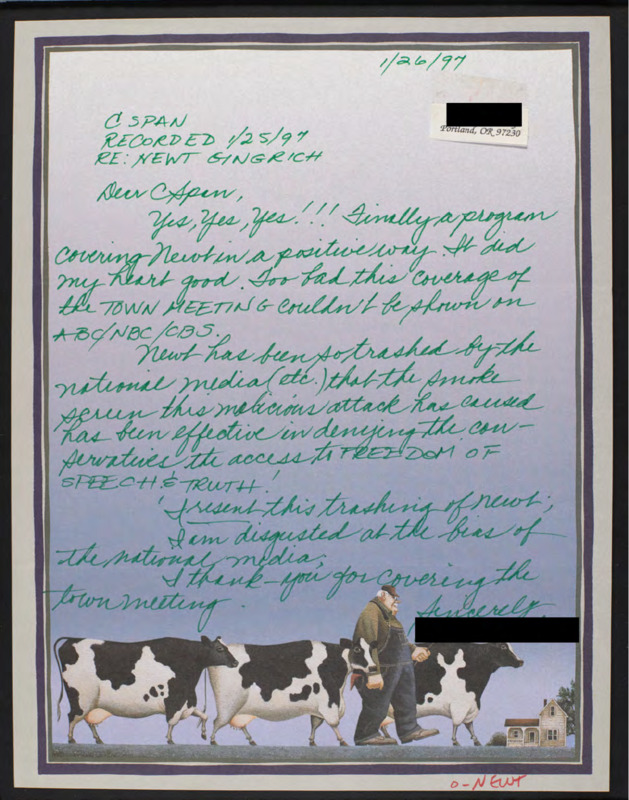 1/26/97
Portland, OR 97230
C SPAN
RECORDED 1/25/97
RE: NEWT GINGRICH
Dear C Span,
Yes, Yes, Yes!!! Finally a program
covering Newt in a positive way. It did
my heart good. Too bad this coverage of
the TOWN MEETING couldn't be shown on
ABC/NBC/CBS.
Newt has been so trashed by the
national media (etc.) that the smoke
screen this malicious attack has caused
has been effective in denying the con-
servatives the access to FREEDOM OF
SPEECH & TRUTH!
I resent this trashing of Newt;
I am disgusted at the bias of
the national media.
I thank-you for covering the
town meeting.
Sincerely,
O-NEWT